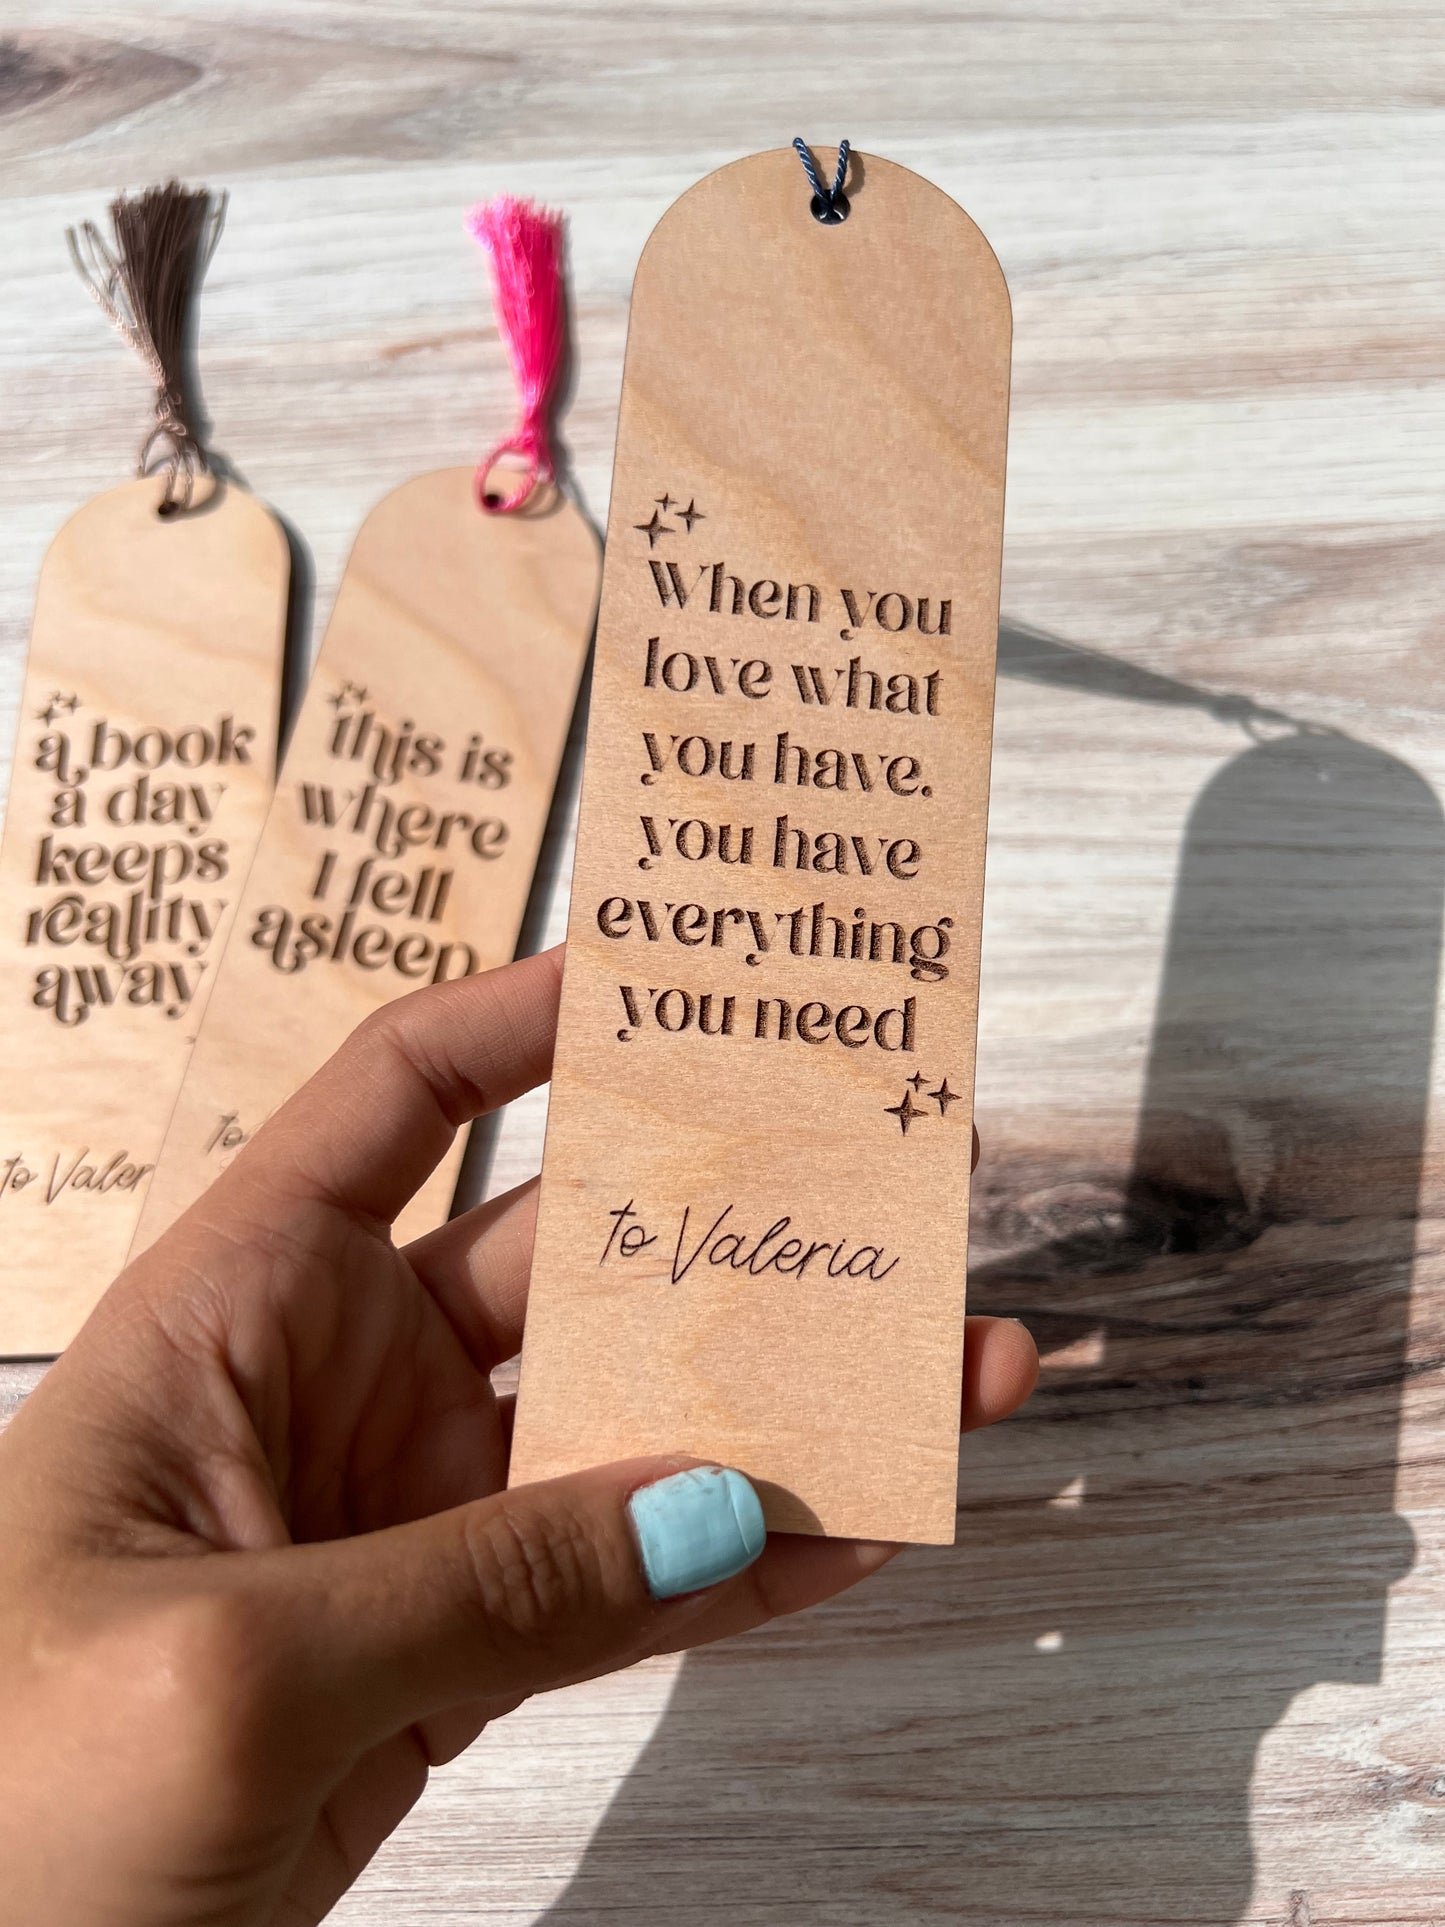 a book
a day
keeps
reality
away
to Valer
this is
where
I fell
asleep
to
When you
love what
you have.
you have
everything
you need
to Valeria